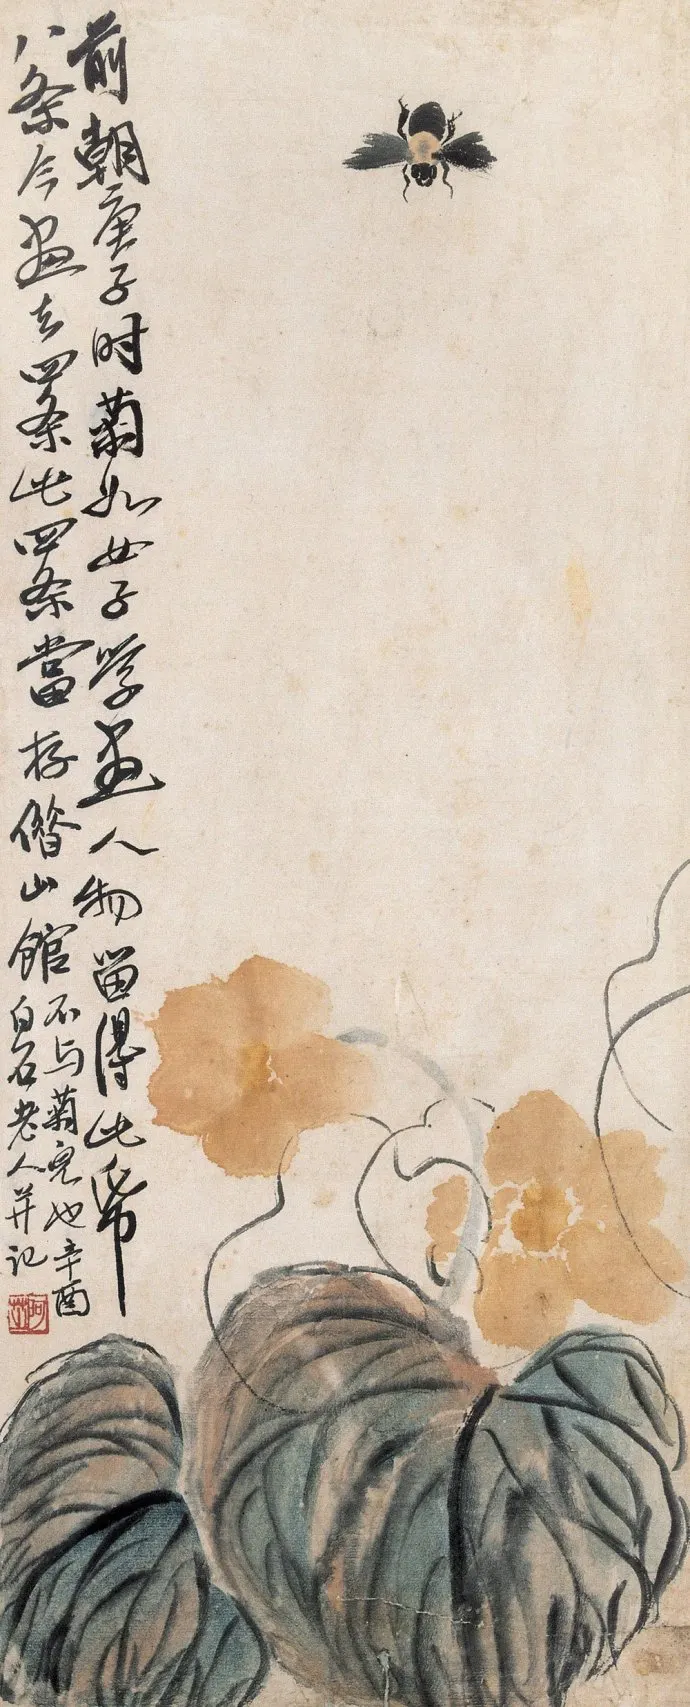 前朝庚子时菊如女子学画人物留得此布
八条今画去四条此四条當存借山館
不与菊兒也辛酉
白石老人并记